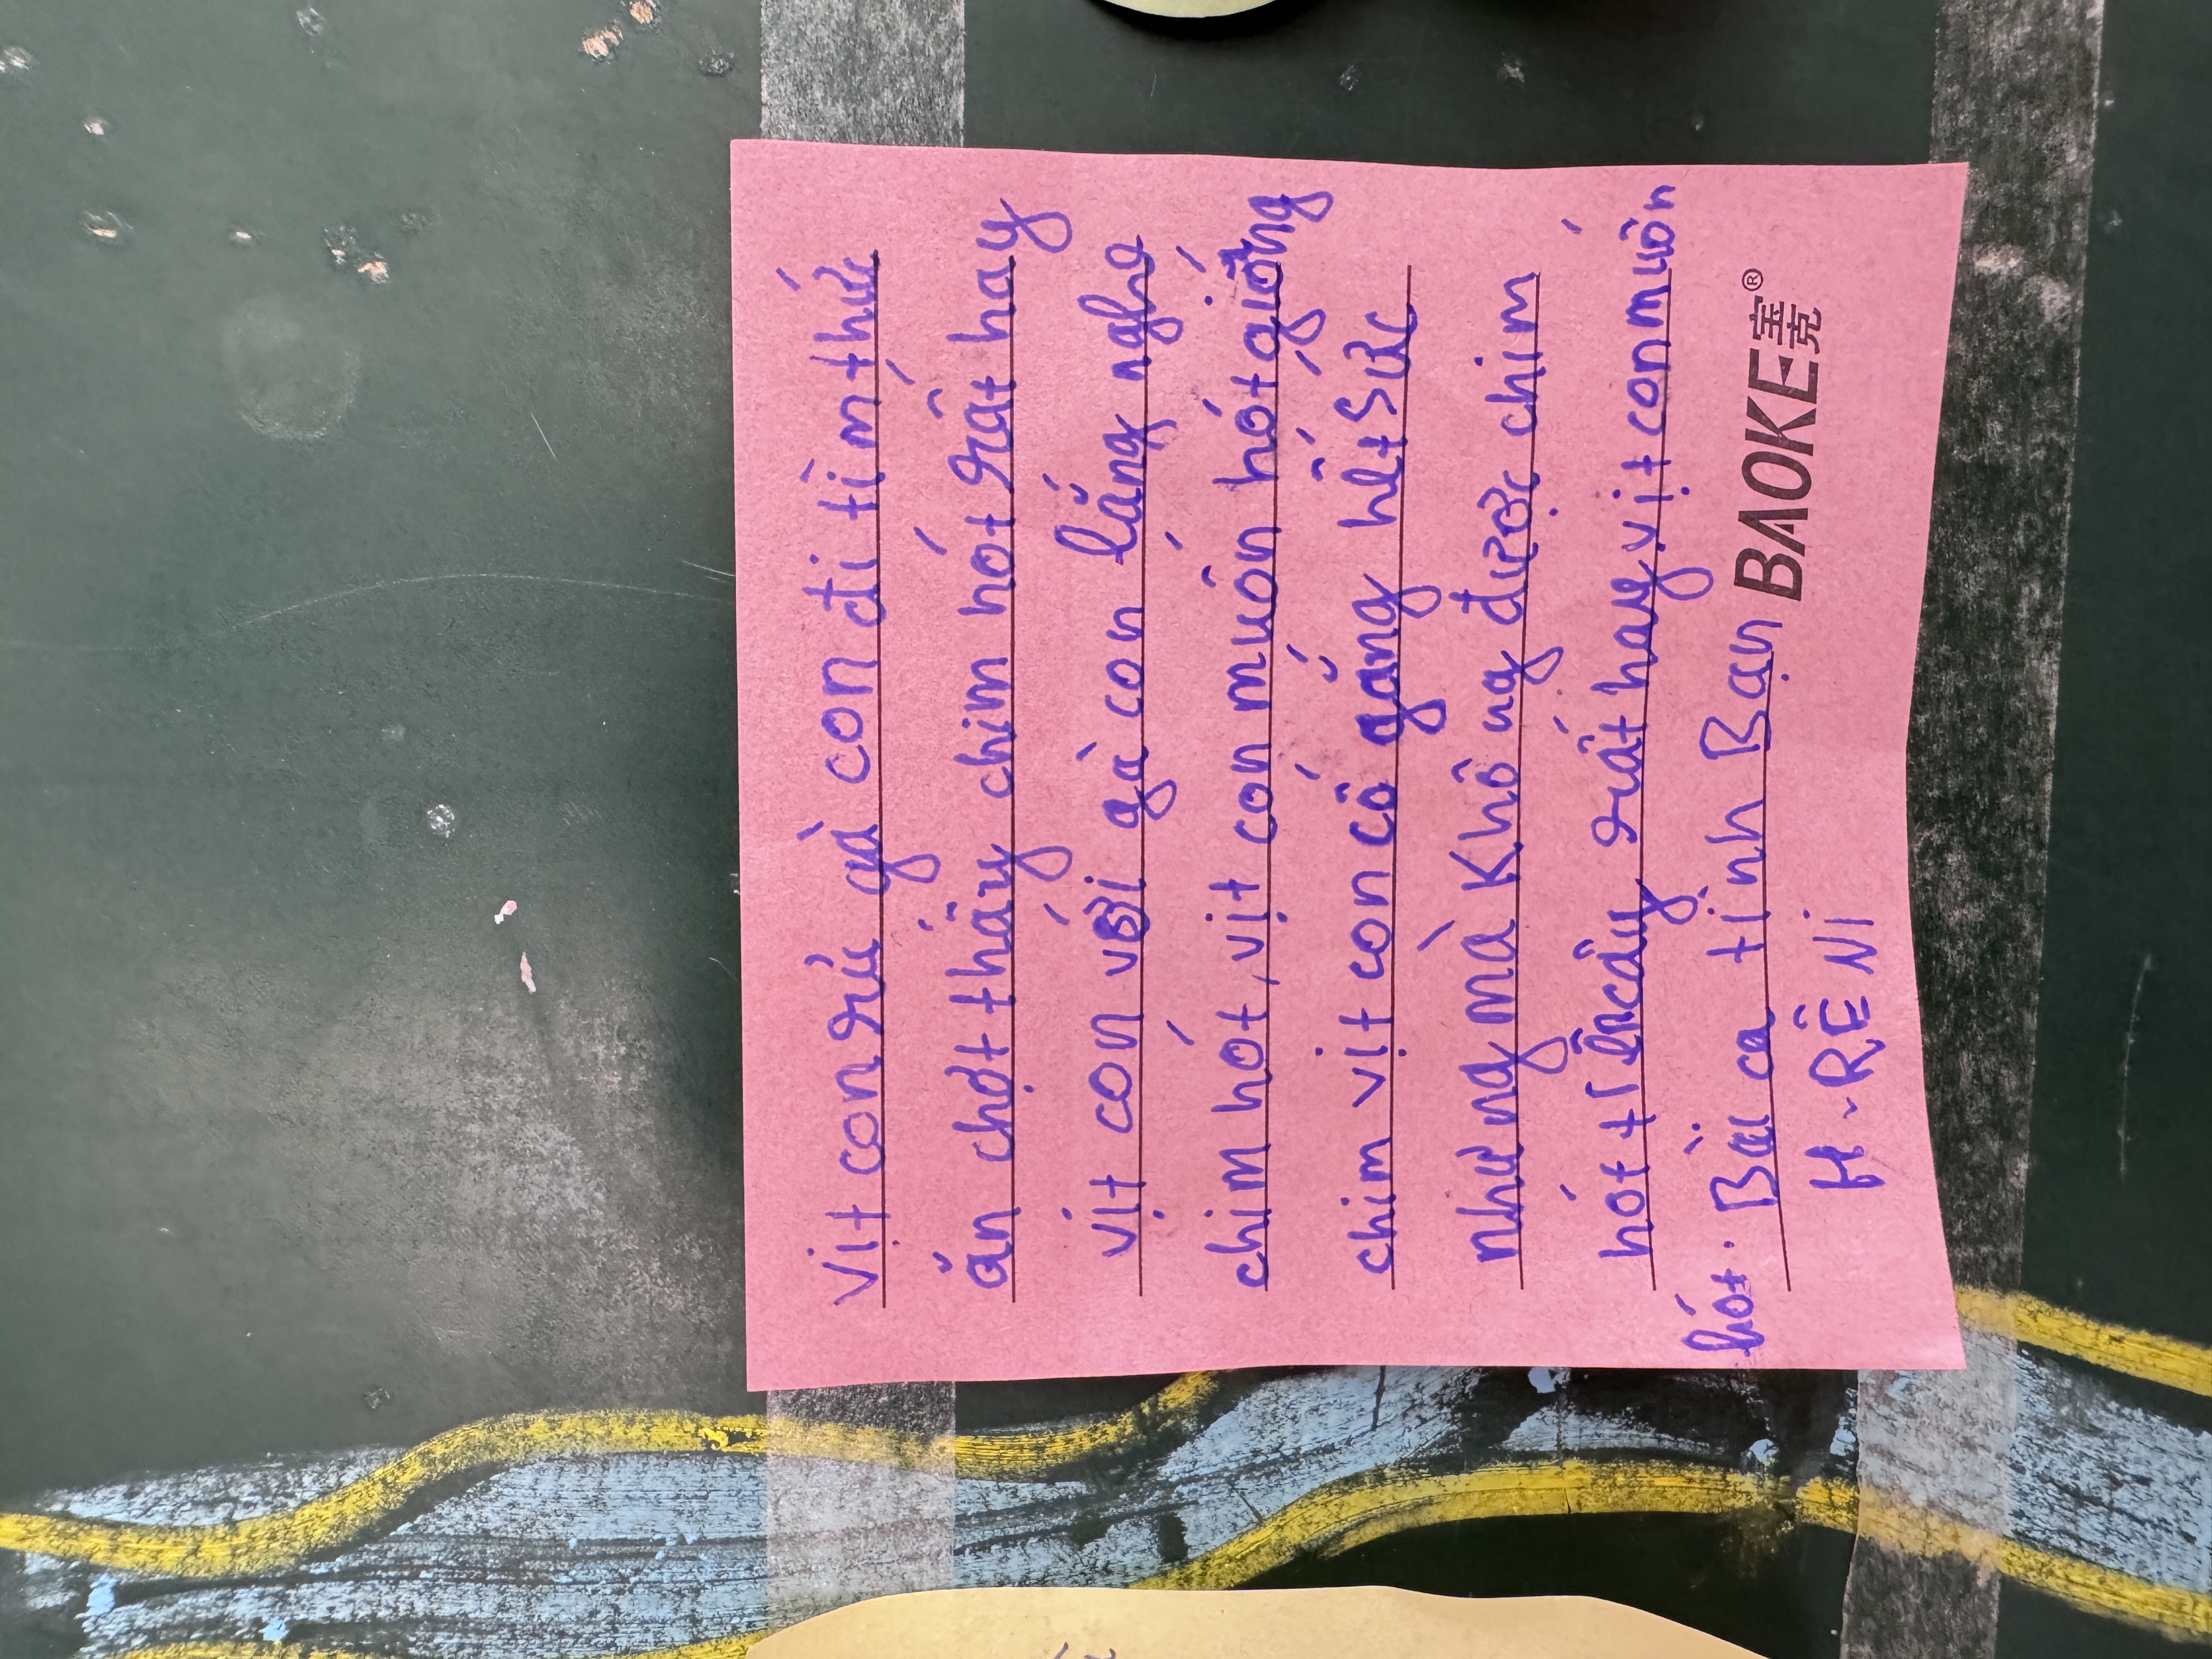 Vịt con rủ gà con đi tìm thức
ăn chợt thấy chim hót rất hay
vịt con với gà con lắng nghe
chim hót, vịt con muốn hót giống
chim vịt con cố gắng hết sức
nhưng mà không được chim
hót trên cây rất hay vịt con muốn
hót. Bài ca tình Bạn
BAOKE宝克®
H-RÊ Ni